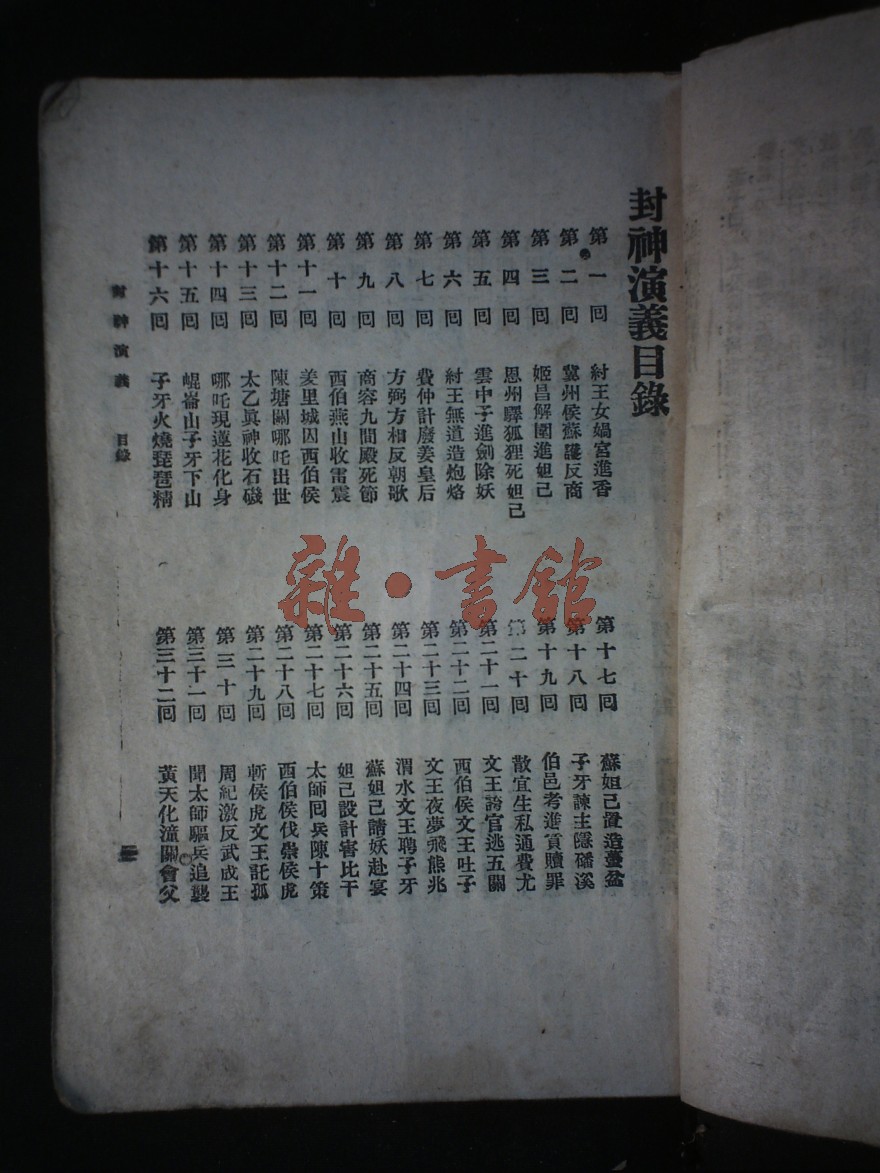 封神演義目錄
第一回 紂王女媧宮進香
第二回 冀州侯蘇護反商
第三回 姬昌解圍進妲己
第四回 恩州驛狐狸死妲己
第五回 雲中子進劍除妖
第六回 紂王無道造炮烙
第七回 費仲計廢姜皇后
第八回 方弼方相反朝歌
第九回 商容九間殿死節
第十回 西伯燕山收雷震
第十一回 羑里城囚西伯侯
第十二回 陳塘關哪吒出世
第十三回 太乙眞神收石磯
第十四回 哪吒現蓮花化身
第十五回 崐崙山子牙下山
第十六回 子牙火燒琵琶精
第十七回 蘇妲己置造蠆盆
第十八回 子牙諫主隱磻溪
第十九回 伯邑考進貢贖罪
第二十回 散宜生私通費尤
第二十一回 文王誇官逃五關
第二十二回 西伯侯文王吐子
第二十三回 文王夜夢飛熊兆
第二十四回 渭水文王聘子牙
第二十五回 蘇妲己請妖赴宴
第二十六回 妲己設計害比干
第二十七回 太師回兵陳十策
第二十八回 西伯侯伐崇侯虎
第二十九回 斬侯虎文王託孤
第三十回 周紀激反武成王
第三十一回 聞太師驅兵追襲
第三十二回 黃天化潼關會父
封神演義 目錄
雜·書館